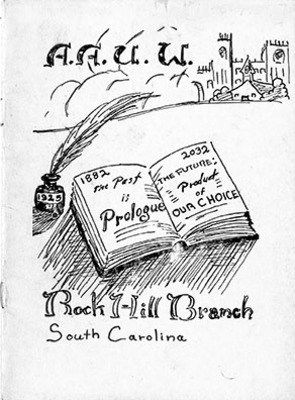 A.A.U.W.
1882
The Past
is
Prologue
2032
THE FUTURE:
Product
of
OUR CHOICE
1925
Rock Hill Branch
South Carolina